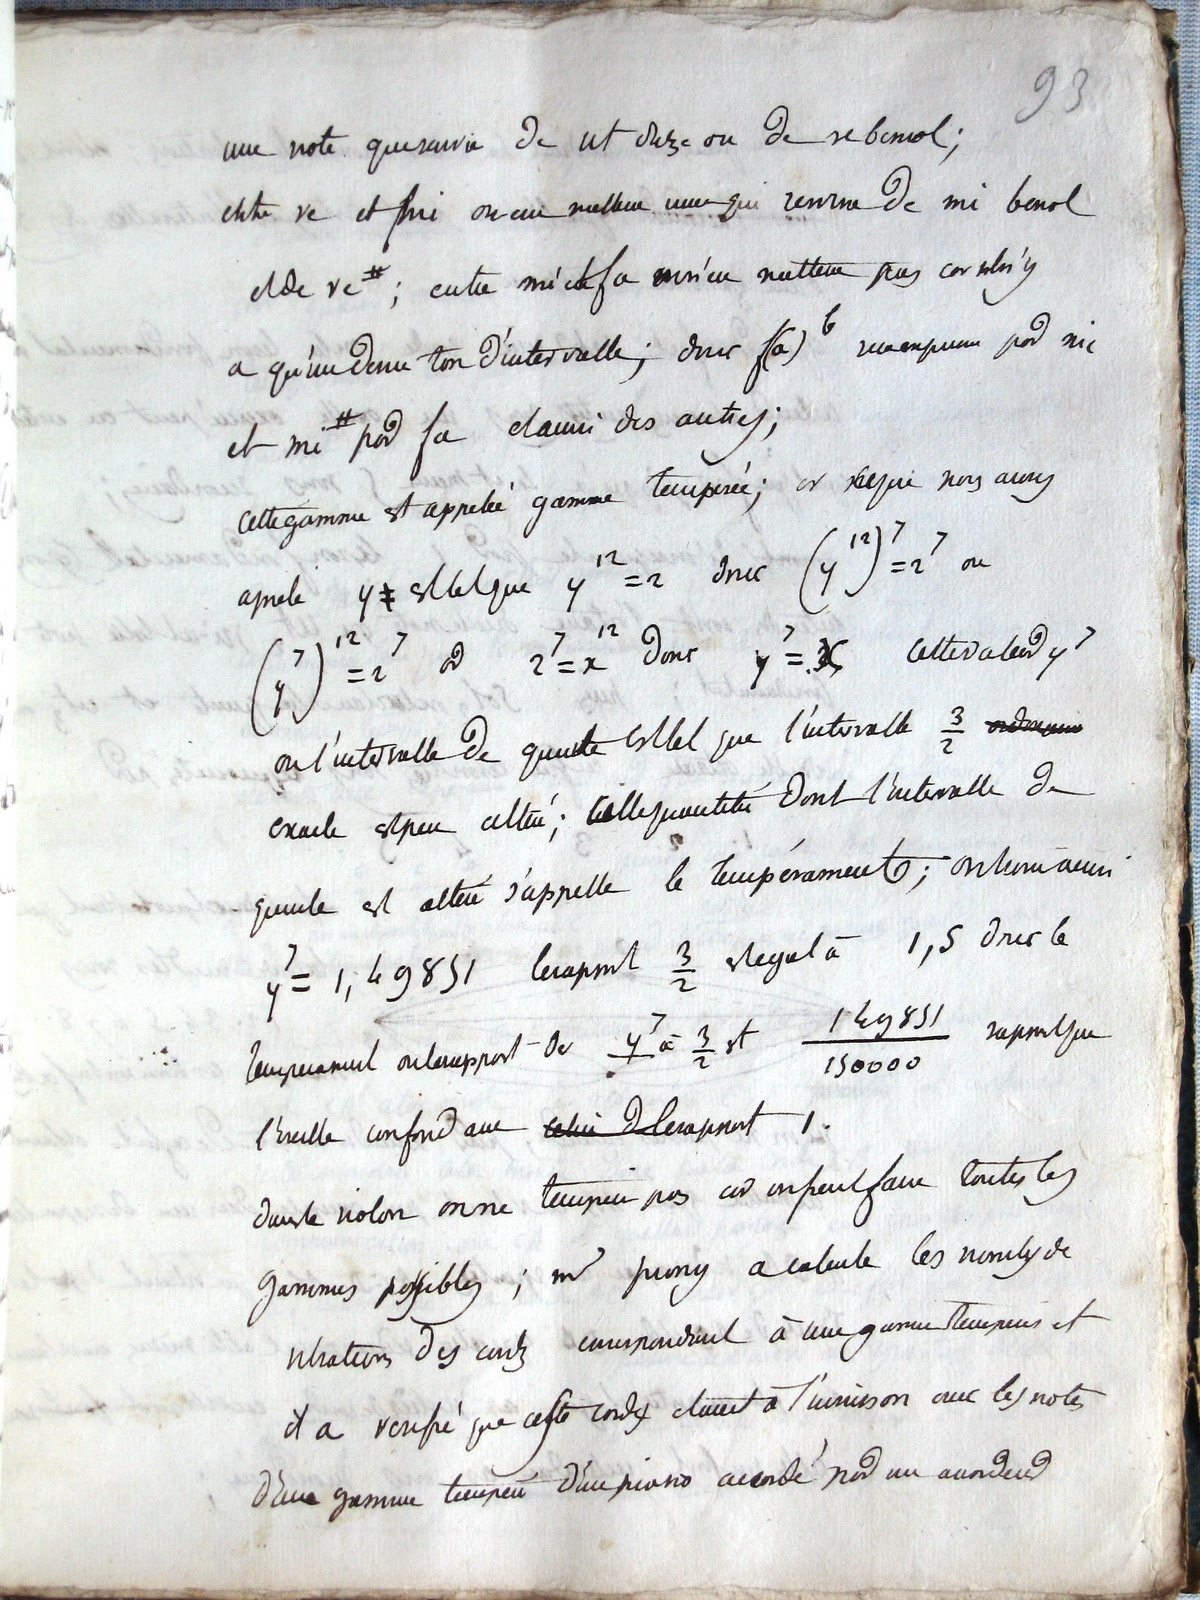 93
une note qui servira de ut dieze ou de re bemol;
entre re et mi on en mettra une qui servira de mi bemol
et de re #; entre mi et fa on n'en mettra pas car il n'y
a qu'un demi ton d'intervalle; donc f(a) b sera pour mi
et mi # pour fa et ainsi des autres;
cette gamme est appelée gamme temperée; or ce que nous avons
apelé y est tel que y^12 = 2 donc (y^12)^7 = 2^7 ou
(y^7)^12 = 2^7 or 2^7 = x^12 donc y^7 = x cette valeur d y^7
ou l'intervalle de quinte est tel que l'intervalle 3/2
exacte est peu alteré; cette quantité dont l'intervalle de
quinte est alteré s'appelle le tempérament; on trouve aussi
y^7 = 1,49831 le rapport 3/2 est egal à 1,5 donc le
temperament ou le rapport de y^7 à 3/2 est 149831/150000 rapport que
l'oreille confond avec celui de le rapport 1.
dans le violon on ne tempere pas car on peut faire toutes les
gammes possibles; mr prony a calculé les nombres de
vibrations des cordes correspondant à une gamme temperée et
il a verifié que cette corde etait à l'unisson avec les notes
d'une gamme temperée d'un piano accordé par un accordeur